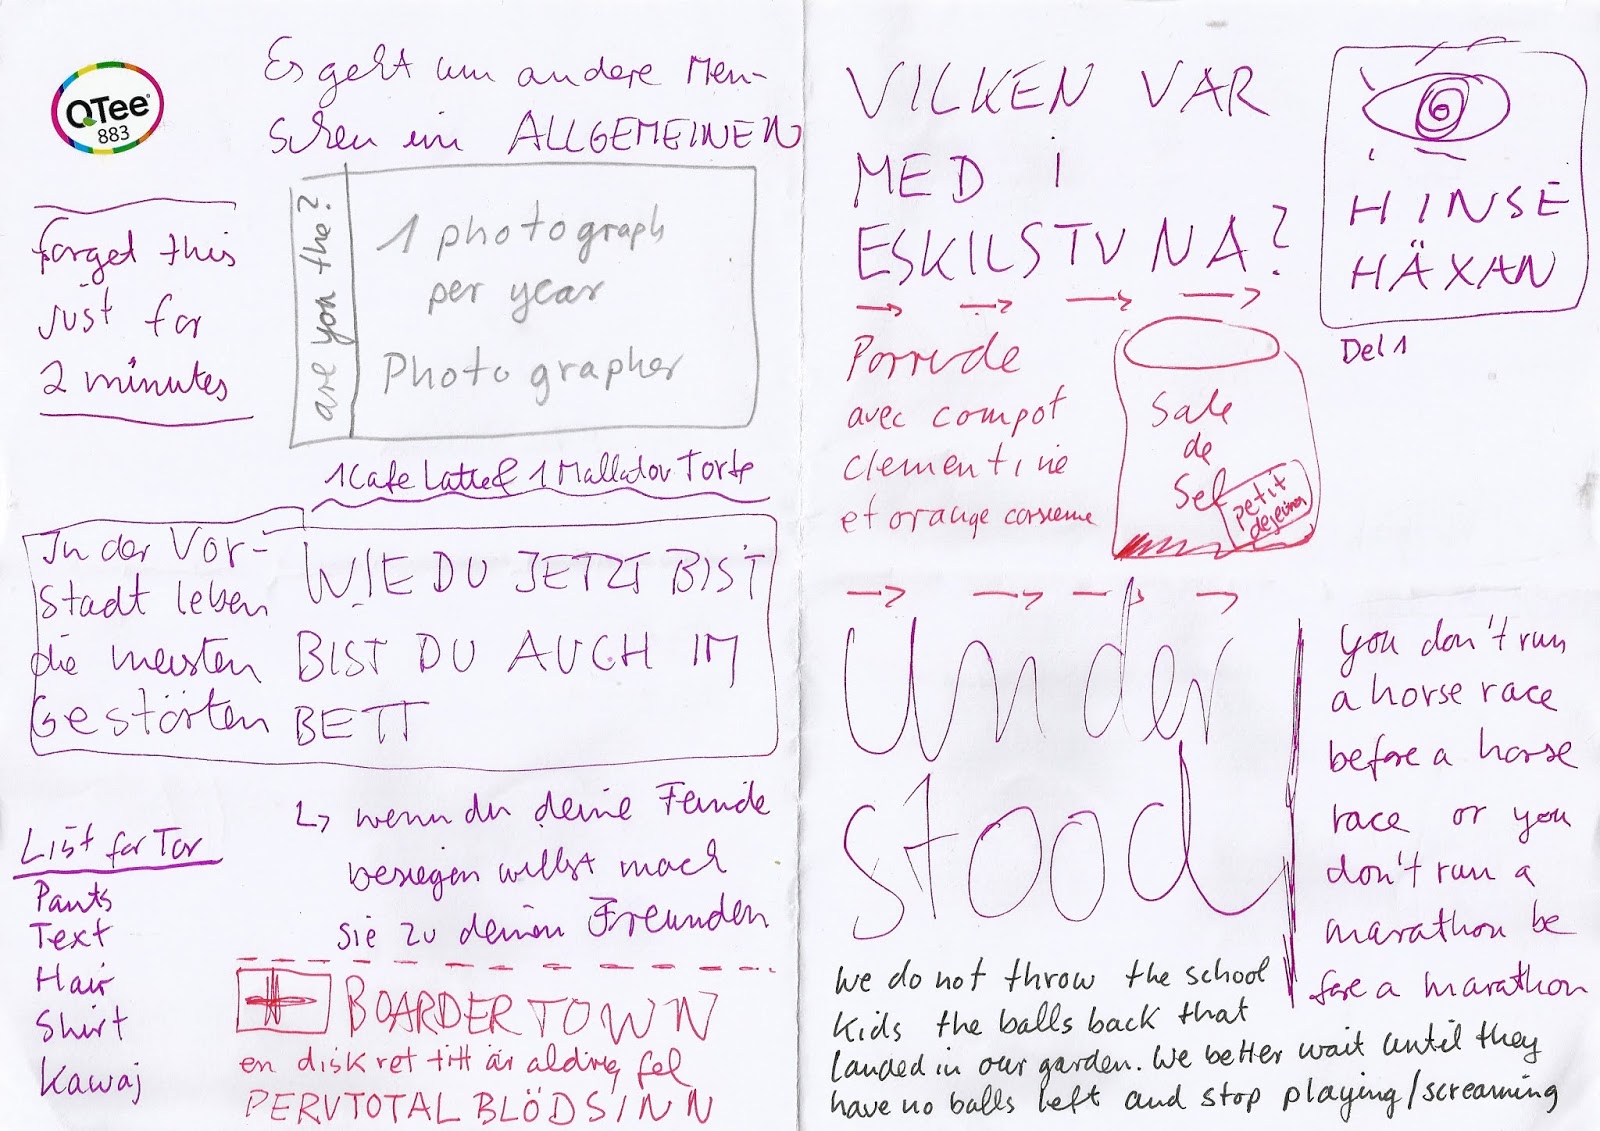 QTee
883
Es geht um andere Men-
schen im ALLGEMEINEN
forget this
just for
2 minutes
are you the?
1 photograph
per year
Photographer
1 Cafe Latte & 1 Torte
In der Vor-
stadt leben
die meisten
Gestörten
WIE DU JETZT BIST
BIST DU AUCH IM
BETT
↳ wenn du deine Feinde
besiegen willst mach
sie zu deinen Freunden
List for Tor
Pants
Text
Hair
Shirt
Kawaj
BOARDER TOWN
en diskret titt är aldrig fel
PERVTOTAL BLÖDSINN
VILKEN VAR
MED i
ESKILSTUNA?
HINSE
HÄXAN
Del 1
→ → → →
avec compot
clementine
et orange
Sale
de
Sel
petit
→ → → →
Under
stood
you don't run
a horse race
before a horse
race or you
don't run a
marathon be
fore a marathon
We do not throw the school
kids the balls back that
landed in our garden. We better wait until they
have no balls left and stop playing/screaming